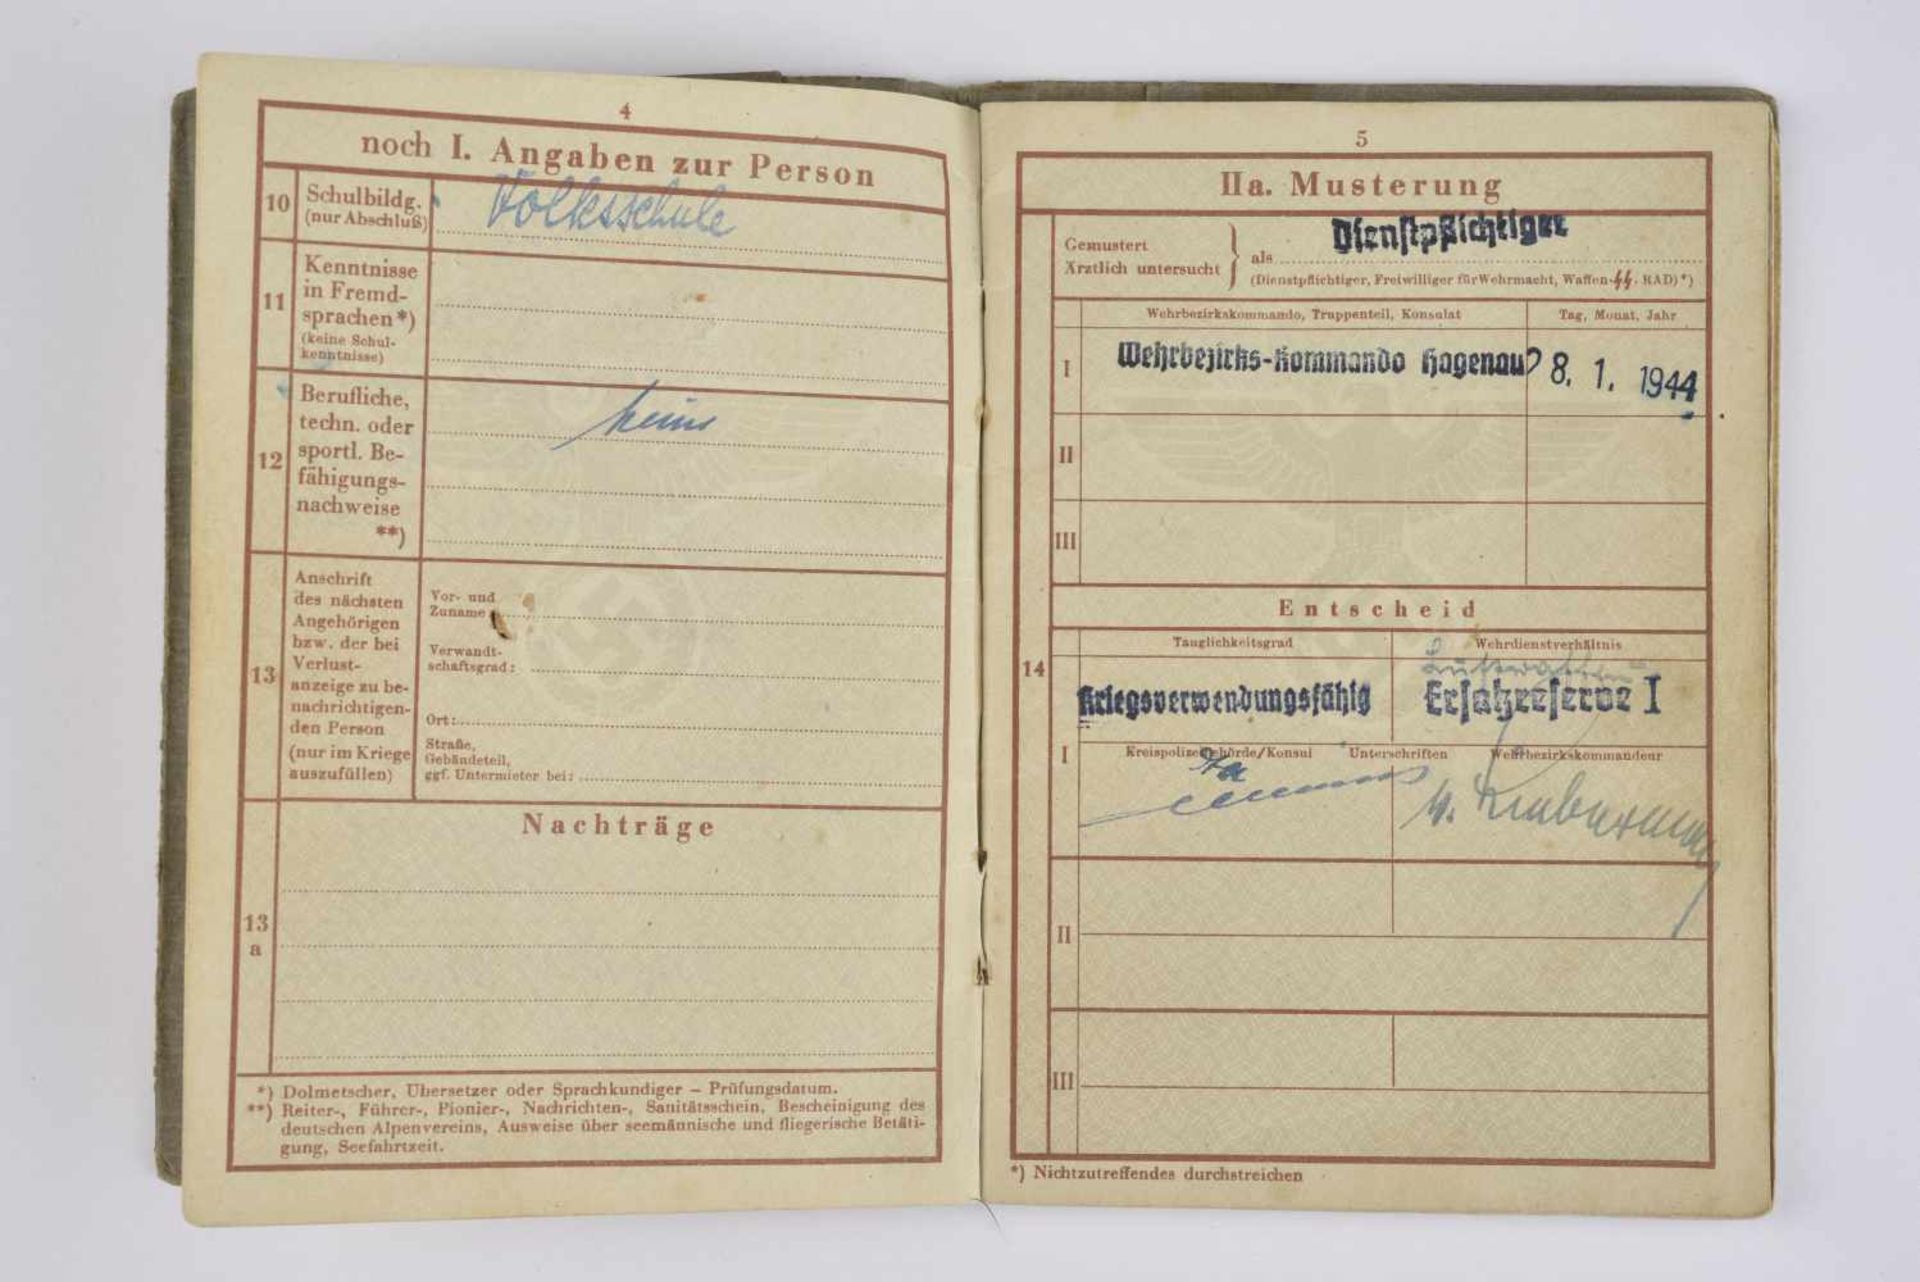 4
noch I. Angaben zur Person
10
Schulbildg.
(nur Abschluß)
Volksschule
11
Kenntnisse
in Fremd-
sprachen*)
(keine Schul-
kenntnisse)
12
Berufliche,
techn. oder
sportl. Be-
fähigungs-
nachweise
**)
keine
13
Anschrift
des nächsten
Angehörigen
bzw. der bei
Verlust-
anzeige zu be-
nachrichtigen-
den Person
(nur im Kriege
auszufüllen)
Vor- und
Zuname
Verwandt-
schaftsgrad:
Ort:
Straße,
Gebäudeteil,
ggf. Untermieter bei:
Nachträge
13
a
*) Dolmetscher, Übersetzer oder Sprachkundiger – Prüfungsdatum.
**) Reiter-, Führer-, Pionier-, Nachrichten-, Sanitätsschein, Bescheinigung des
deutschen Alpenvereins, Ausweise über seemännische und fliegerische Betäti-
gung, Seefahrtzeit.
5
IIa. Musterung
Gemustert
Ärztlich untersucht
als
Dienstpflichtiger
(Dienstpflichtiger, Freiwilliger für Wehrmacht, Waffen-SS, RAD)*)
Wehrbezirkskommando, Truppenteil, Konsulat
Tag, Monat, Jahr
I
Wehrbezirks-Kommando Hagenau
8. 1. 1944
II
III
Entscheid
14
Tauglichkeitsgrad
Wehrdienstverhältnis
Kriegsverwendungsfähig
Ersatzreserve I
I
Kreispolizeibehörde/Konsul
Unterschriften
Wehrbezirkskommandeur
II
III
*) Nichtzutreffendes durchstreichen